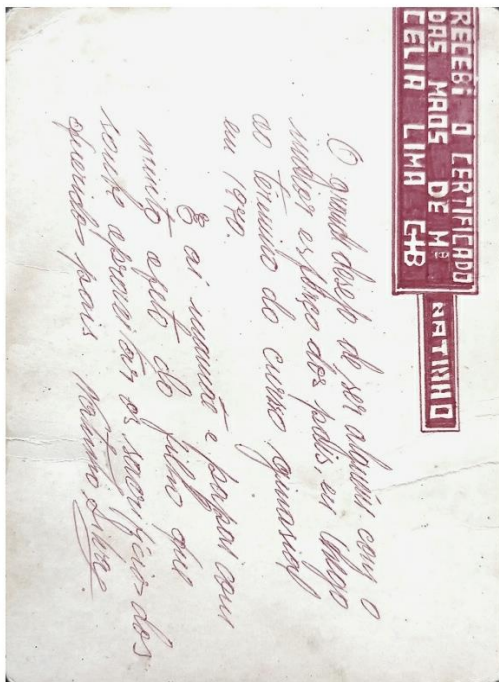 RECEBI O CERTIFICADO
DAS MAOS DE Mª
CELIA LIMA G+B
NATINHO
O grande desejo de ser alguém com o
maior esforço dos pais, eu chego
ao término do curso ginasial
em 1970.
E aí mamãe e papai com
muito afeto do filho que
soube aproveitar os sacrifícios dos
queridos pais. Natinho